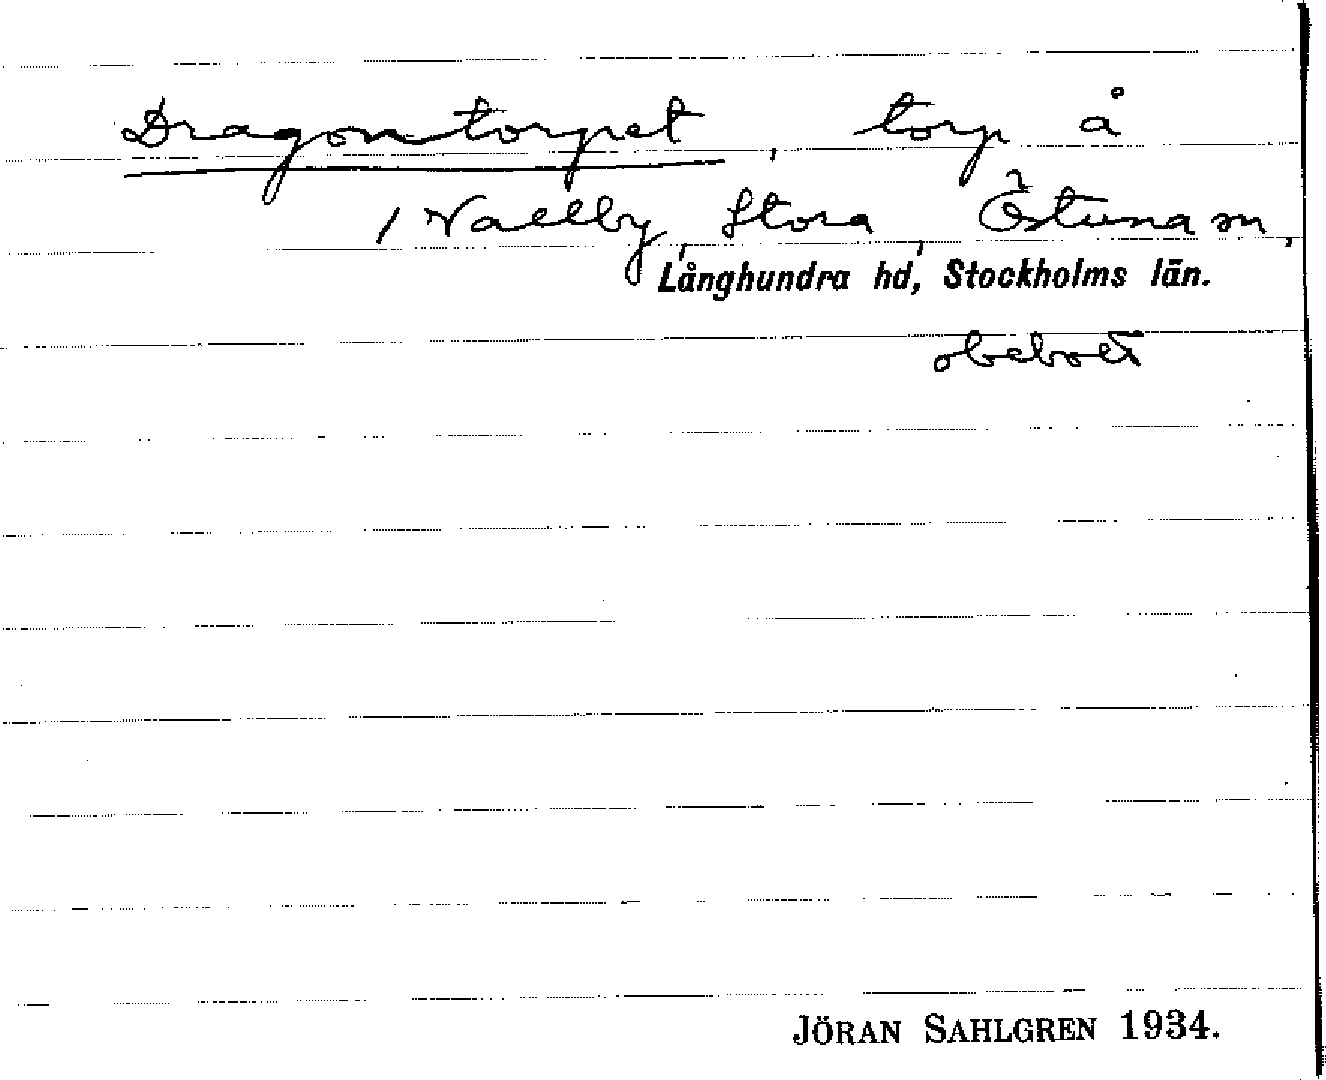 Dragontorpet, torp å
/ Vallby, Stora Östuna sn,
Långhundra hd, Stockholms län.
obebott
JÖRAN SAHLGREN 1934.